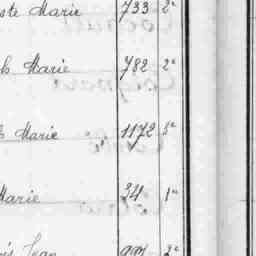 ste Marie 733 2e
Marie 782 2e
Marie 1172 3e
Marie 34 1e
Jean 2e